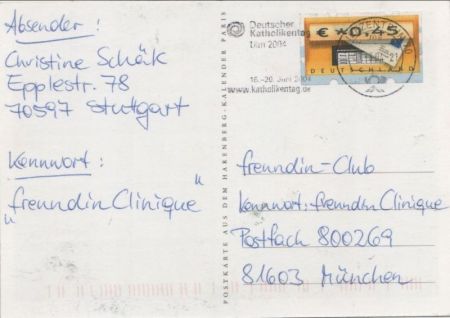 Absender:
Christine Schäk
Epplestr. 78
70597 Stuttgart
Kennwort:
"freundin Clinique"
POSTKARTE AUS DEM HARENBERG-KALENDER PARIS
Deutscher
Katholikentag
Ulm 2004
16.-20. Juni 2004
www.katholikentag.de
€ *0,45
DEUTSCHLAND
BRIEFZENTRUM
freundin-Club
Kennwort: freundin Clinique
Postfach 800269
81603 München